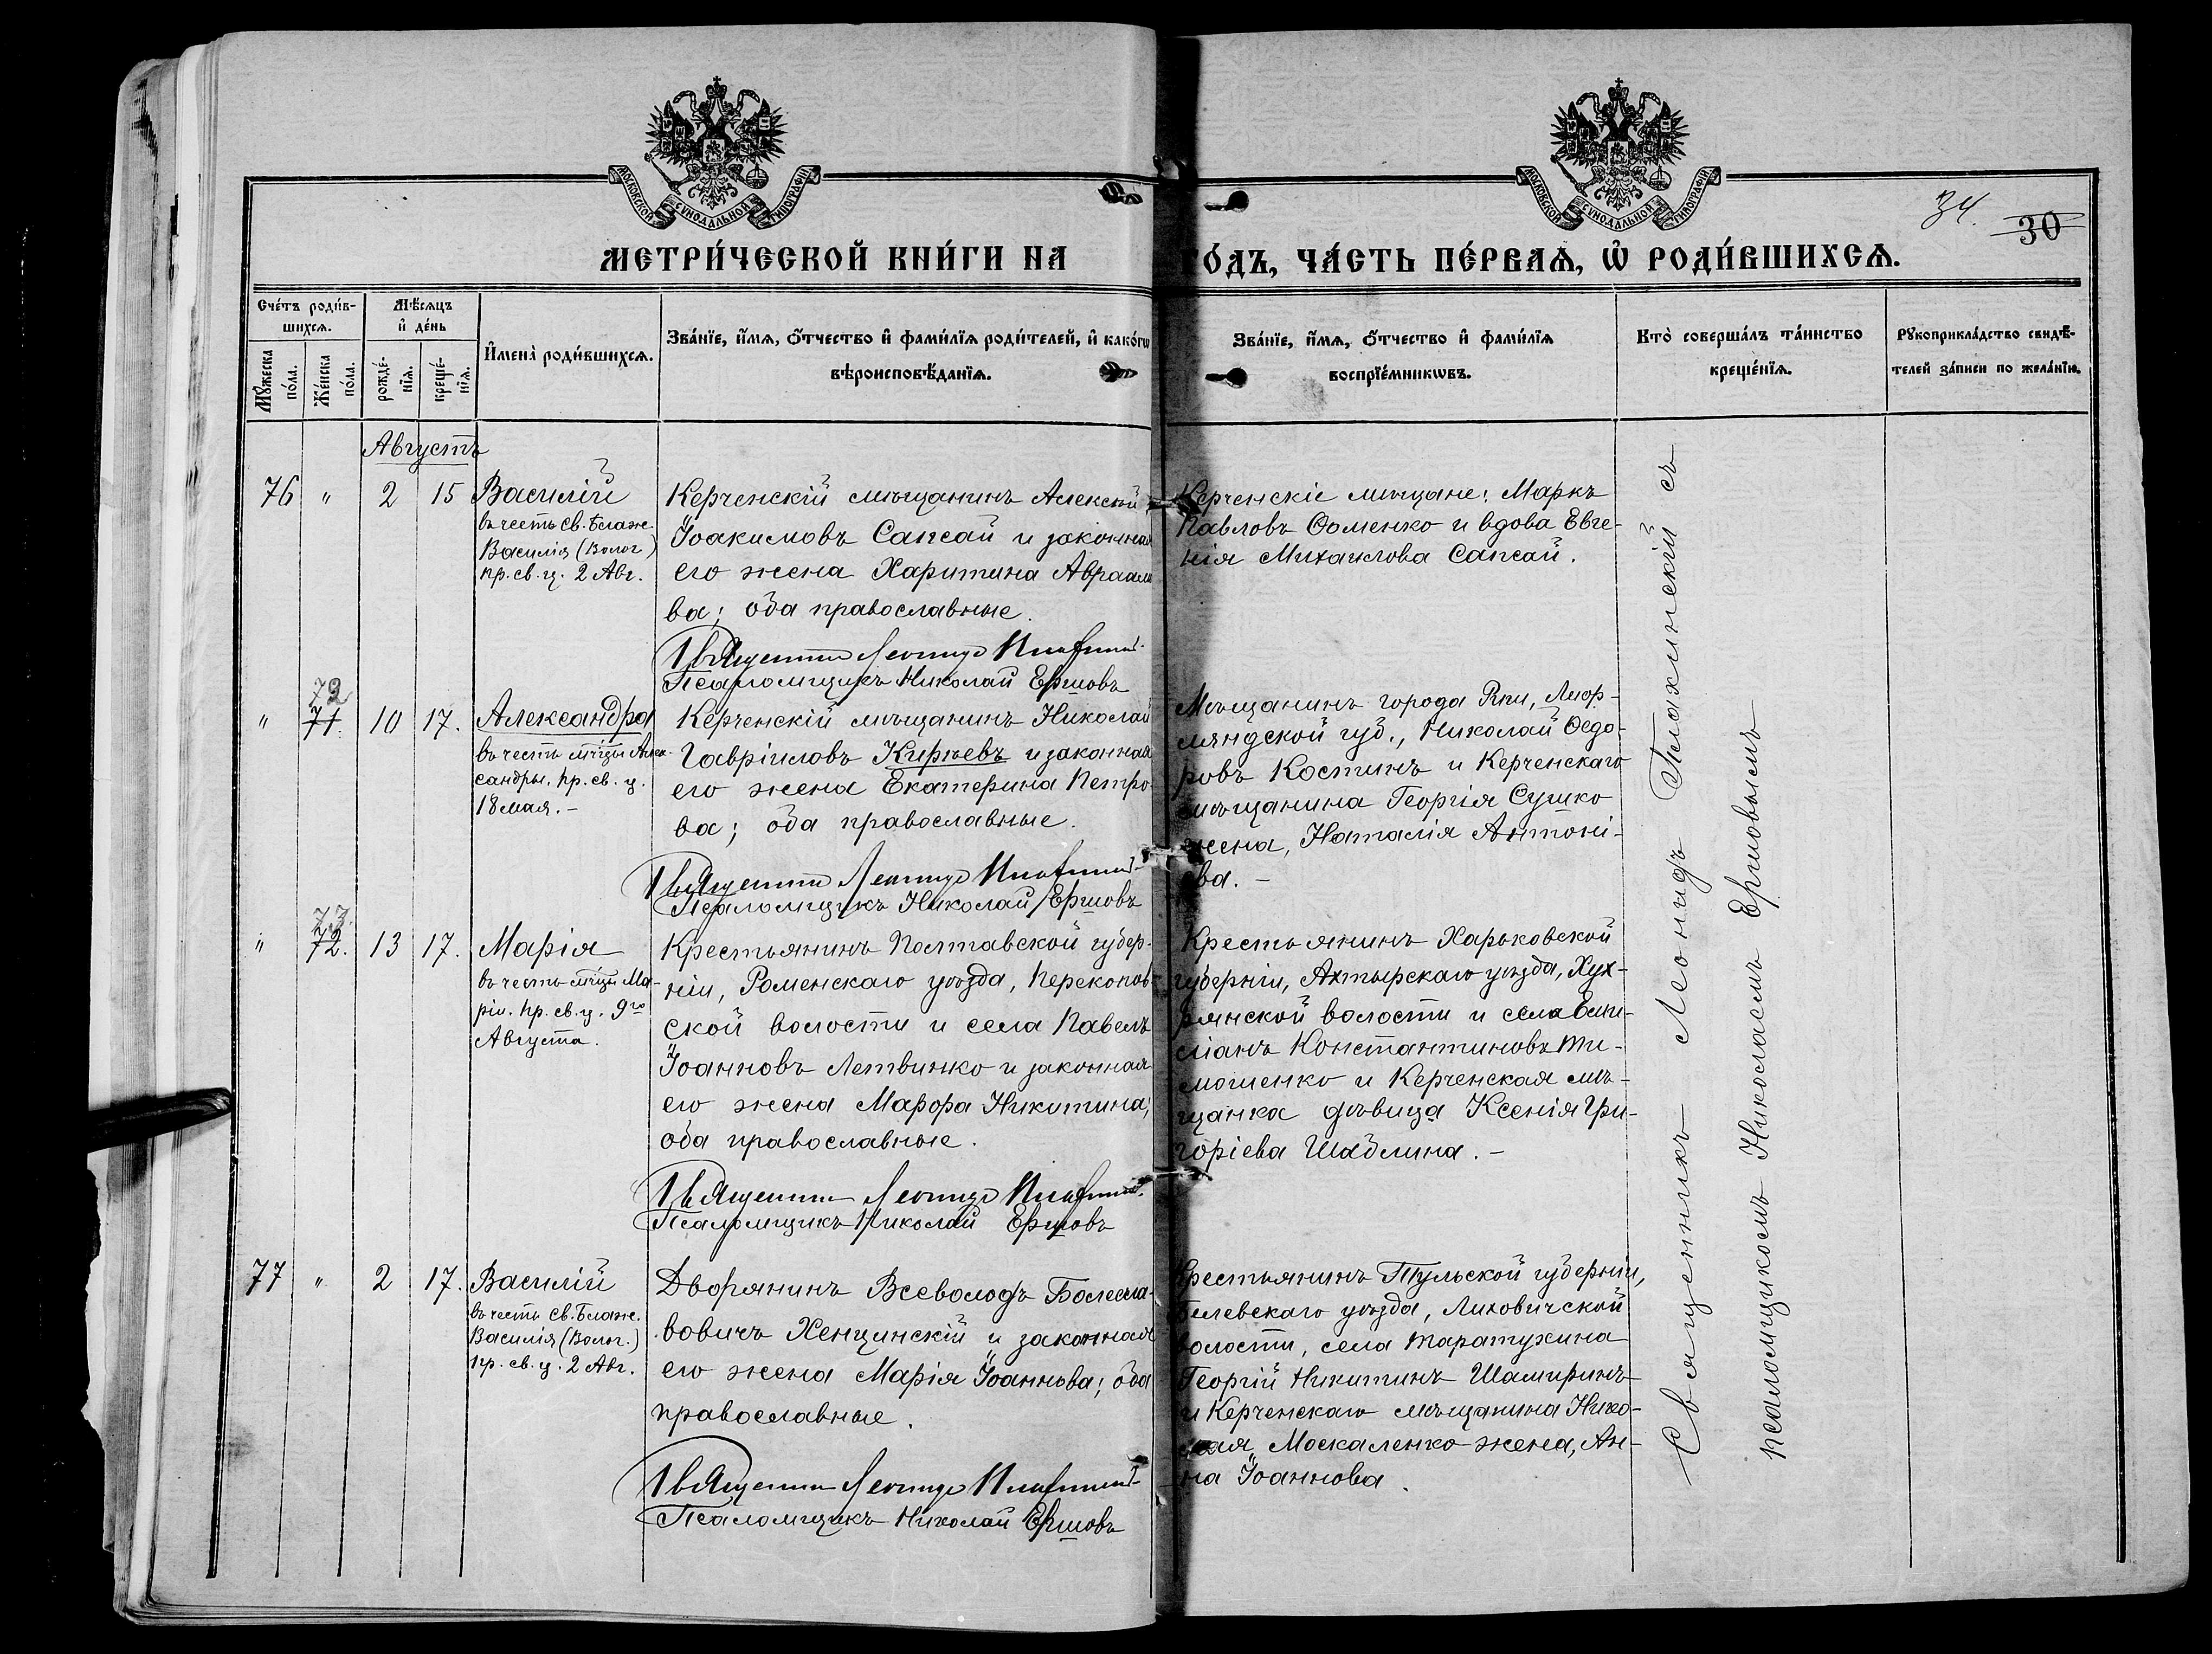 МОСКОВСКОЙ СУНОДАЛЬНОЙ ТИПОГРАФІИ
МОСКОВСКОЙ СУНОДАЛЬНОЙ ТИПОГРАФІИ
34. 30
МЕТРИ́ЧЕСКОЙ КНИ́ГИ НА
ГО́ДЪ, ЧА́СТЬ ПЕ́РВАѦ, Ѡ҆ РОДИ́ВШИХСѦ.
Сче́тъ роди́в-
шихсѧ.
Мꙋ́жеска по́ла.
Же́нска по́ла.
Мѣ́сѧцъ
и҆ де́нь
рожде́-
нїѧ.
креще́-
нїѧ.
И҆мена̀ роди́вшихсѧ.
Зва́нїе, и҆́мѧ, ѻ҆́тчество и҆ фами́лїѧ роди́телей, и҆ како́гѡ
вѣроисповѣ́данїѧ.
Зва́нїе, и҆́мѧ, ѻ҆́тчество и҆ фами́лїѧ
воспрїе́мникѡвъ.
Кто̀ соверша́лъ та́инство
креще́нїѧ.
Рꙋкоприкла́дство свидѣ́-
телей за́писи по жела́нїю.
Августъ
76 " 2 15
Василій
въ честь св. Блаж.
Василія (Волог.)
пр. св. ц. 2 Авг.
Керченскій мѣщанинъ Алексѣй
Іоакимовъ Сапсай и законная
его жена Харитина Авраамо
ва; оба православные.
Священникъ Леонидъ
Псаломщикъ Николай Ершовъ
Керченскіе мѣщане: Маркъ
Павловъ Ѳоменко и вдова Евге-
нія Михаилова Сапсай.
72
" 71. 10 17.
Александра
въ честь мчцы Алек-
сандры, пр. св. ц.
18 мая. -
Керченскій мѣщанинъ Николай
Гавріиловъ Кирѣевъ и законная
его жена Екатерина Петро-
ва; оба православные.
Священникъ Леонидъ
Псаломщикъ Николай Ершовъ
Мѣщанинъ города Лиф-
ляндской губ., Николай Ѳедо-
ровъ Костинъ и Керченскаго
мѣщанина Георгія Сушко
жена, Наталія Антоні-
ева. -
73.
" 72. 13 17.
Марія
въ честь мчцы Ма-
ріи. пр. св. ц. 9го
Августа.
Крестьянинъ Полтавской губер-
ніи, Роменскаго уѣзда, Перекопов-
ской волости и села Павелъ
Іоанновъ Летвинко и законная
его жена Марѳа Никитина;
оба православные.
Священникъ Леонидъ
Псаломщикъ Николай Ершовъ
Крестьянинъ Харьковской
губерніи, Ахтырскаго уѣзда, Хух-
рянской волости и села
Константиновъ Ти-
мошенко и Керченская мѣ-
щанка дѣвица Ксенія Гри-
горіева Шаблина. -
77 " 2 17.
Василій
въ честь св. Блаж.
Василія (Волог.)
пр. св. ц. 2 Авг.
Дворянинъ Всеволодъ Болесла-
вовичъ Хенцинскій и законная
его жена Марія Іоаннова; оба
православные.
Священникъ Леонидъ
Псаломщикъ Николай Ершовъ
Крестьянинъ Тульской губерніи,
Белевскаго уѣзда, Лиховичской
волости, села Таратухина
Георгій Никитинъ Шамиринъ
и Керченскаго мѣщанина Нико-
лая Москаленко жена, Ан-
на Іоаннова.
Священникъ Леонидъ Плахинскій съ
псаломщикомъ Николаемъ Ершовымъ